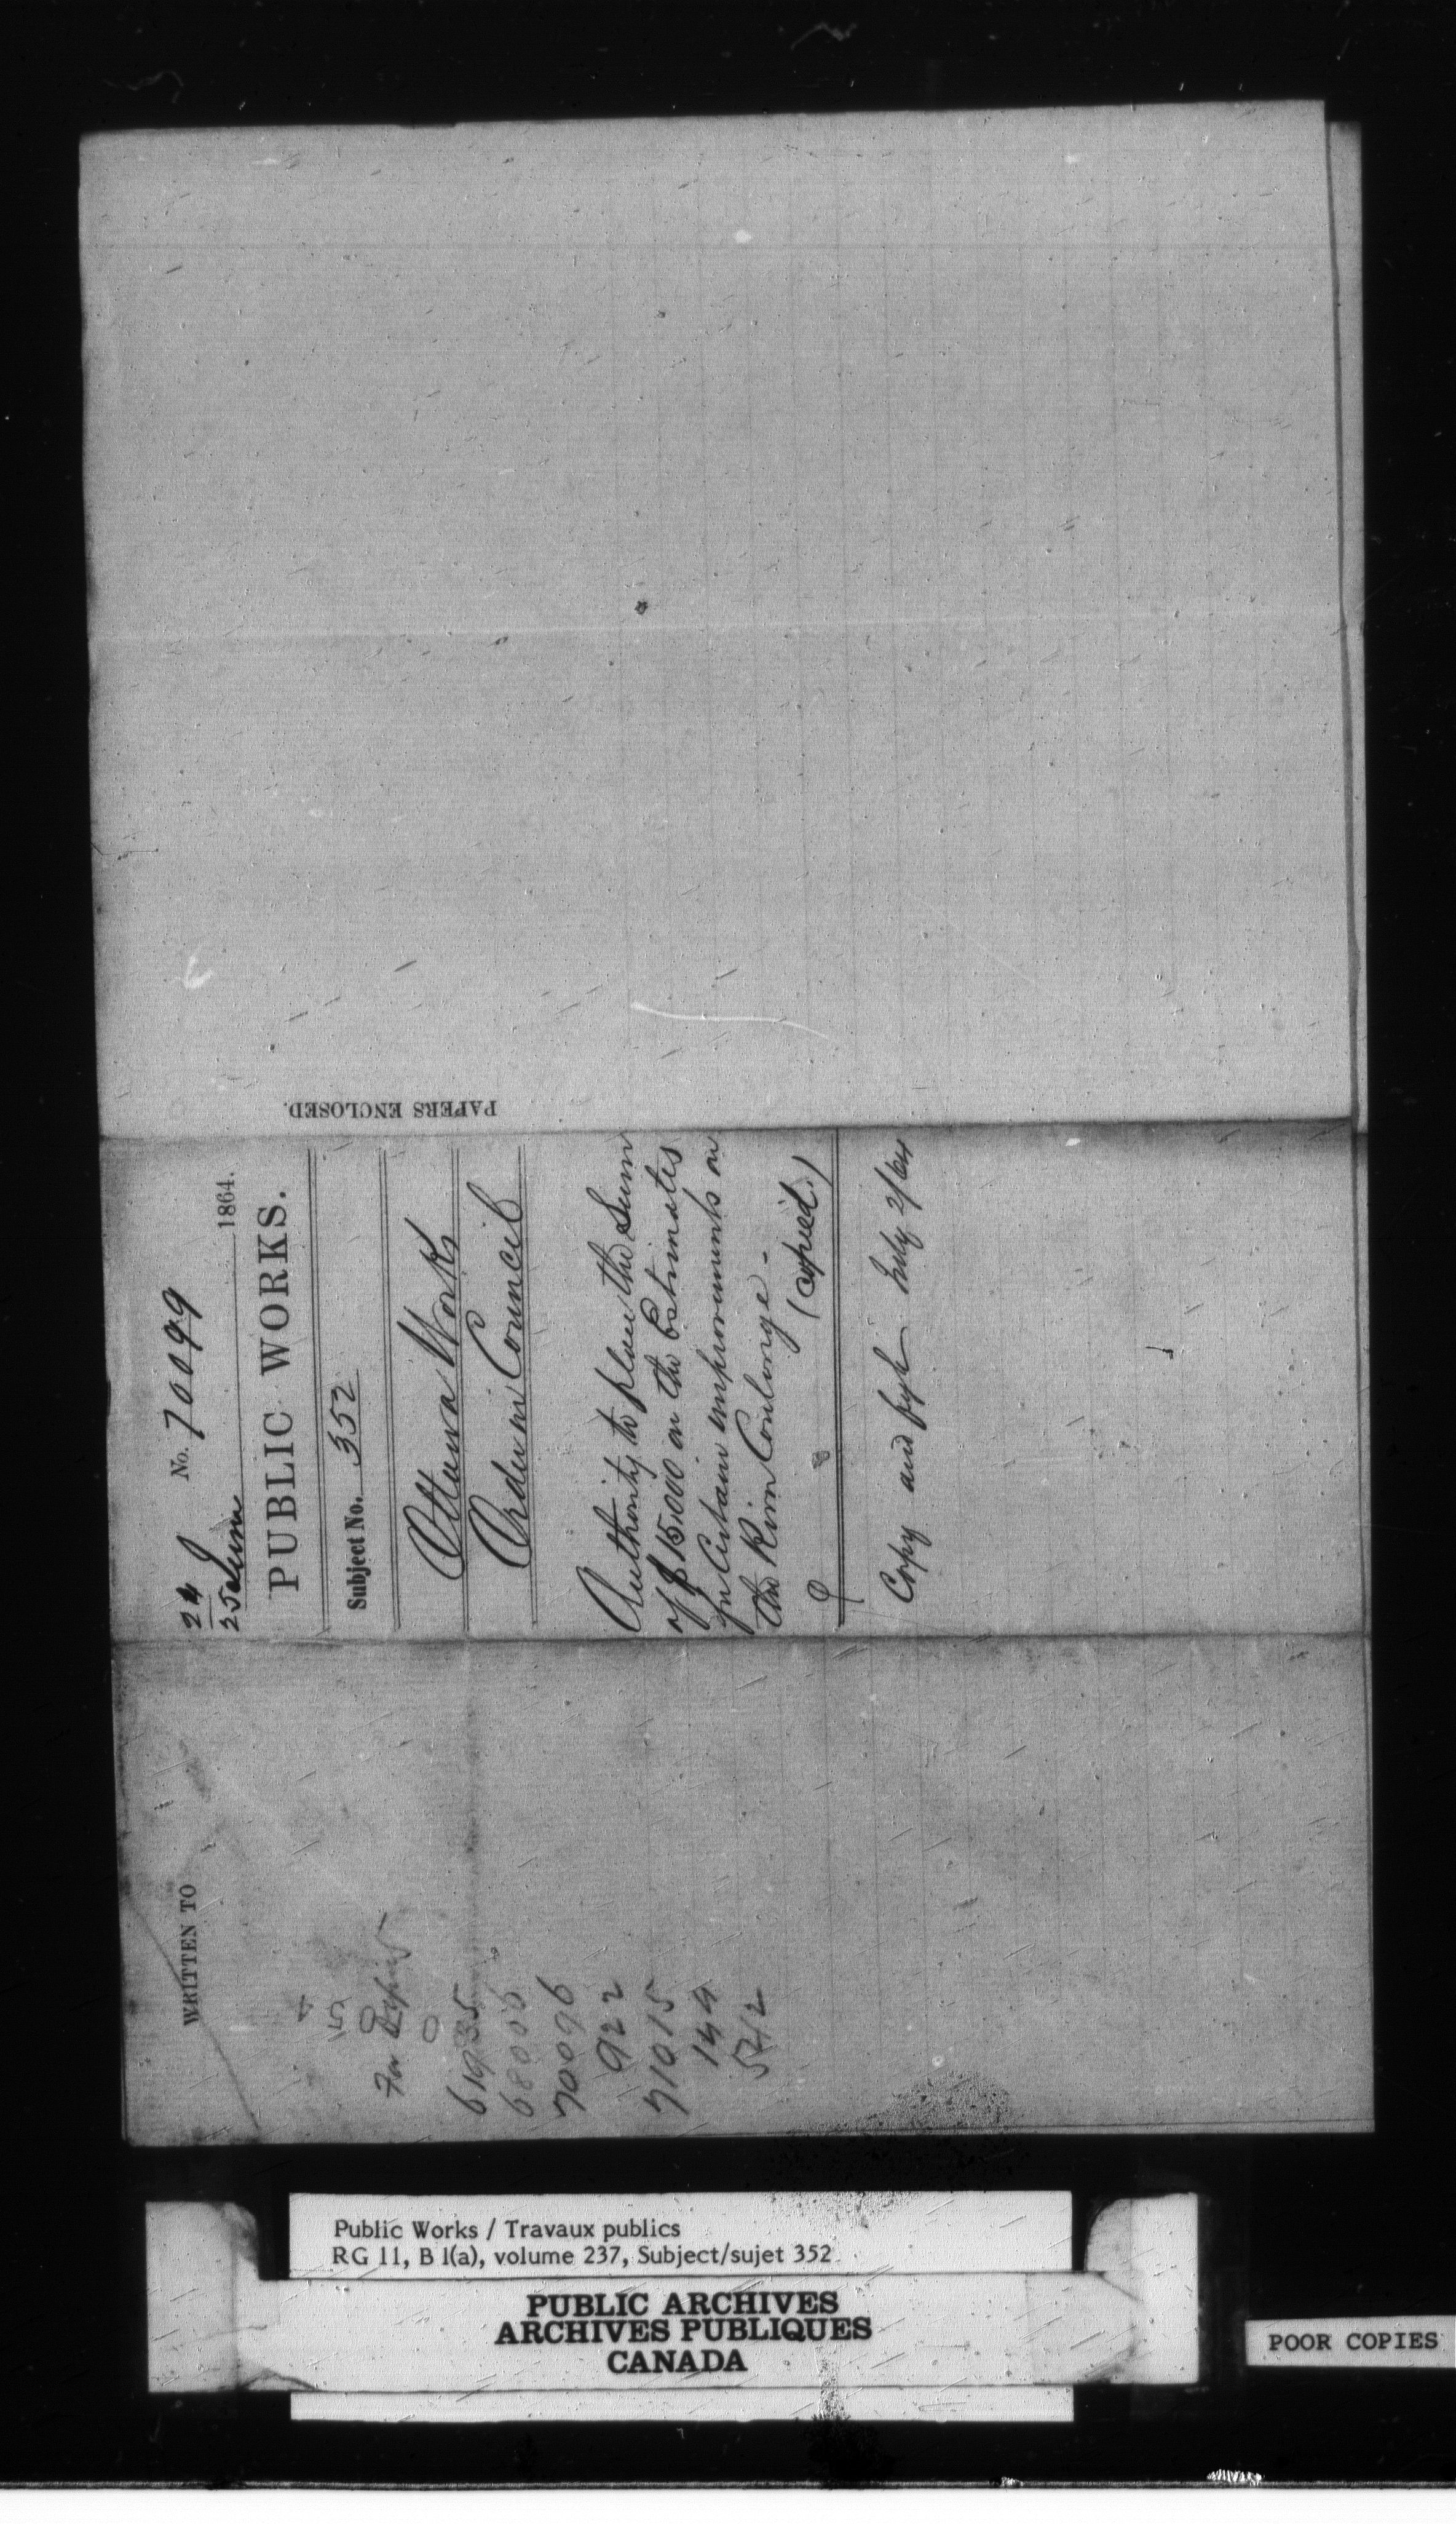 PAPERS ENCLOSED.
24 No. 70099
25 June 1864.
PUBLIC WORKS.
Subject No. 352
Ottawa Works
Order in Council
Authority to place the Sum
of $15,000 on the Estimates
for Certain improvements on
the River Coulonge -
(copied.)
Copy and fyle July 2/64
WRITTEN TO
4
5
0
For
0
61935
68006
70096
922
71015
144
5412
Public Works / Travaux publics
RG 11, B 1(a), volume 237, Subject/sujet 352
PUBLIC ARCHIVES
ARCHIVES PUBLIQUES
CANADA
POOR COPIES